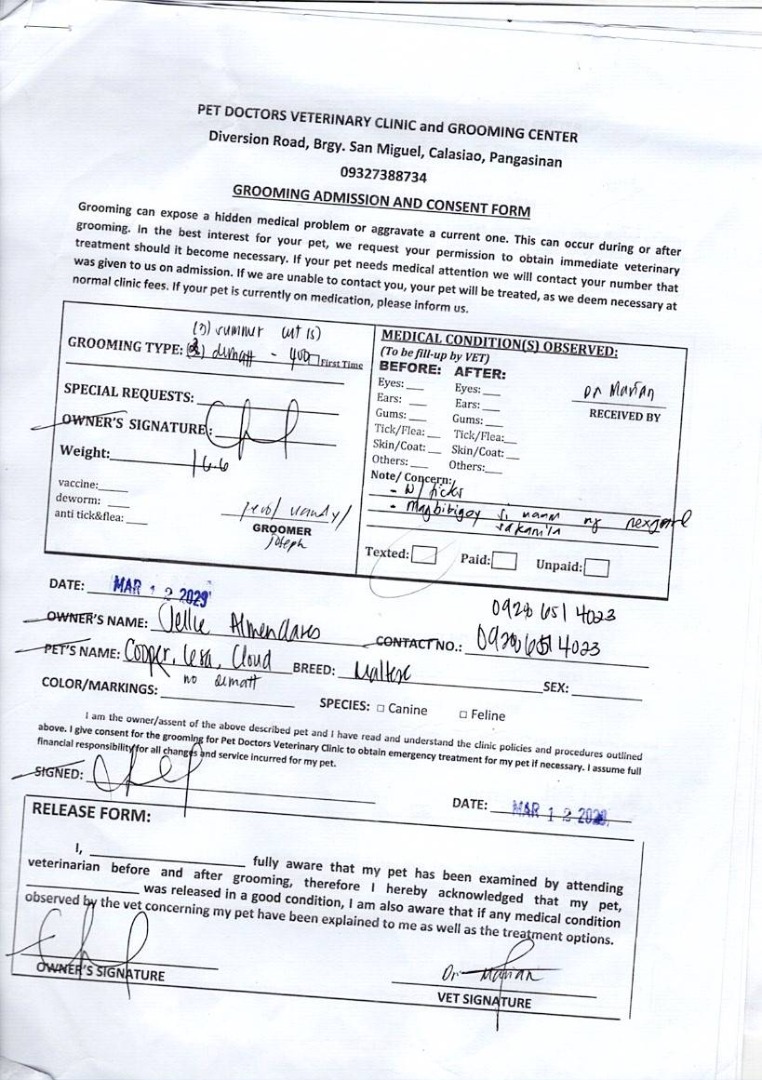 PET DOCTORS VETERINARY CLINIC and GROOMING CENTER
Diversion Road, Brgy. San Miguel, Calasiao, Pangasinan
09327388734
GROOMING ADMISSION AND CONSENT FORM
Grooming can expose a hidden medical problem or aggravate a current one. This can occur during or after
grooming. In the best interest for your pet, we request your permission to obtain immediate veterinary
treatment should it become necessary. If your pet needs medical attention we will contact your number that
was given to us on admission. If we are unable to contact you, your pet will be treated, as we deem necessary at
normal clinic fees. If your pet is currently on medication, please inform us.
(3) summer cut (s)
GROOMING TYPE: (2) dematt - 400 First Time
SPECIAL REQUESTS:
OWNER'S SIGNATURE:
Weight: 16.6
vaccine:
deworm:
anti tick&flea:
GROOMER
Joseph
MEDICAL CONDITION(S) OBSERVED:
(To be fill-up by VET)
BEFORE: AFTER:
Eyes: Eyes:
Ears: Ears:
Gums: Gums:
Tick/Flea: Tick/Flea:
Skin/Coat: Skin/Coat:
Others: Others:
Dr Marian
RECEIVED BY
Note/ Concern:
- w/ ticks
- Magbibigay si maam ng nexgard
sakanila
Texted: Paid: Unpaid:
DATE: MAR 12
0920 651 4023
OWNER'S NAME: Jellie Almendares CONTACT NO.: 0920 651 4023
PET'S NAME: Cooper, Cloud BREED: Maltese SEX:
no dematt
COLOR/MARKINGS: SPECIES: □ Canine □ Feline
I am the owner/assent of the above described pet and I have read and understand the clinic policies and procedures outlined
above. I give consent for the grooming for Pet Doctors Veterinary Clinic to obtain emergency treatment for my pet if necessary. I assume full
financial responsibility for all changes and service incurred for my pet.
SIGNED: DATE: MAR 12
RELEASE FORM:
I, fully aware that my pet has been examined by attending
veterinarian before and after grooming, therefore I hereby acknowledged that my pet,
was released in a good condition, I am also aware that if any medical condition
observed by the vet concerning my pet have been explained to me as well as the treatment options.
OWNER'S SIGNATURE
Dr Marian
VET SIGNATURE